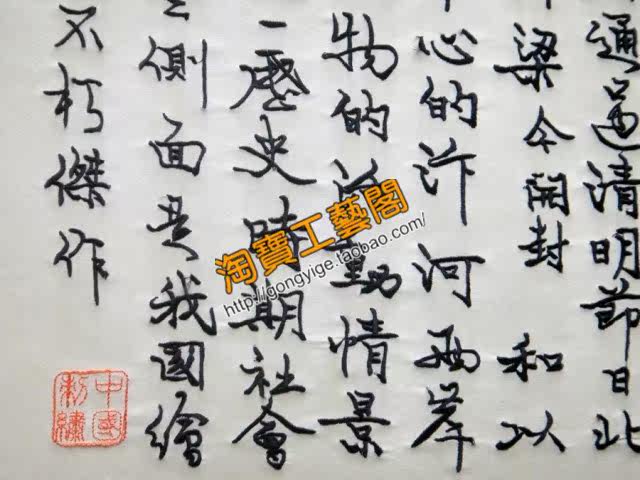 通過清明節日北
梁今開封 和以
心的汴河两岸
物的活動情景
一歷史時期社會
側面是我國繪
不朽傑作
中國刺繡
淘寶工藝閣
http://gongyige.taobao.com/